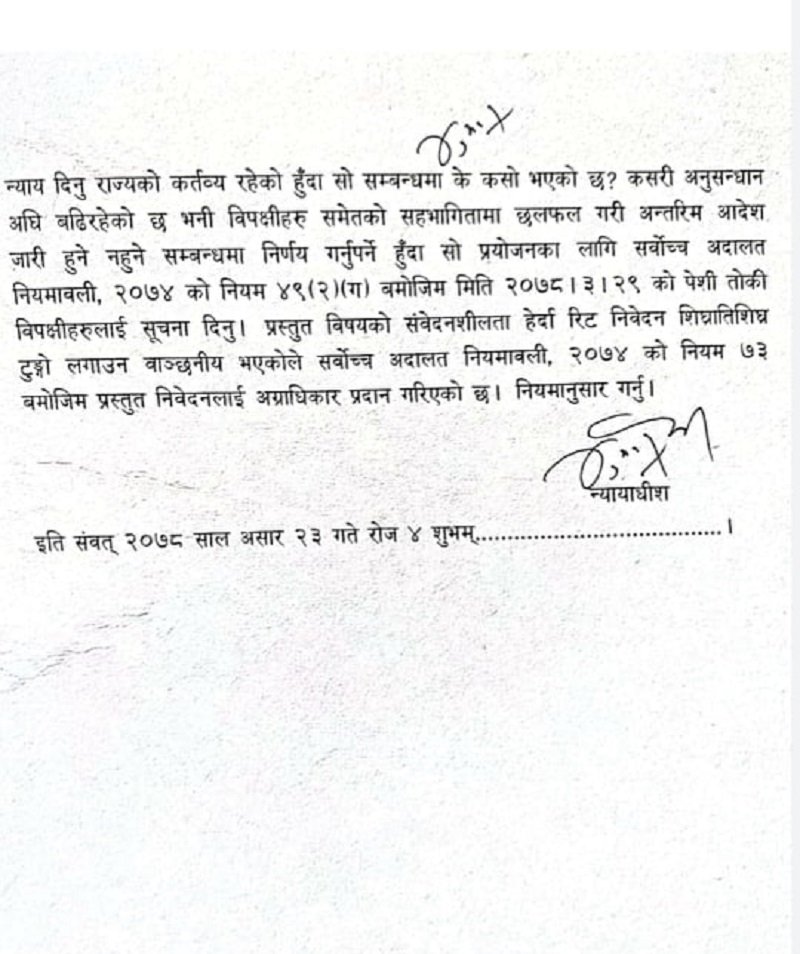 न्याय दिनु राज्यको कर्तव्य रहेको हुँदा सो सम्बन्धमा के कसो भएको छ? कसरी अनुसन्धान
अघि बढिरहेको छ भनी विपक्षीहरु समेतको सहभागितामा छलफल गरी अन्तरिम आदेश
जारी हुने नहुने सम्बन्धमा निर्णय गर्नुपर्ने हुँदा सो प्रयोजनका लागि सर्वोच्च अदालत
नियमावली, २०७४ को नियम ४९(२)(ग) बमोजिम मिति २०७८।३।२९ को पेशी तोकी
विपक्षीहरुलाई सूचना दिनु। प्रस्तुत विषयको संवेदनशीलता हेर्दा रिट निवेदन शिघ्रातिशिघ्र
टुङ्गो लगाउन वाञ्छनीय भएकोले सर्वोच्च अदालत नियमावली, २०७४ को नियम ७३
बमोजिम प्रस्तुत निवेदनलाई अग्राधिकार प्रदान गरिएको छ। नियमानुसार गर्नु।
न्यायाधीश
इति संवत् २०७८ साल असार २३ गते रोज ४ शुभम्......................................।